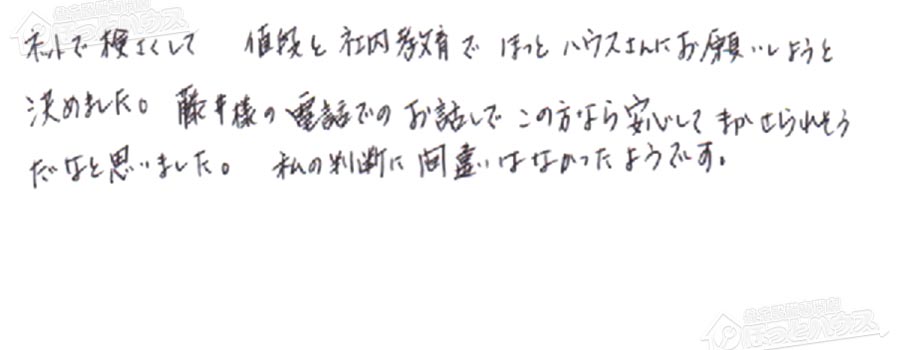 ネットで検さくして 値段と社内教育で ほっとハウスさんにお願いしようと
決めました。藤井様の電話でのお話しで この方なら安心して まかせられそう
だなと思いました。 私の判断に間違いはなかったようです。
ほっとハウス